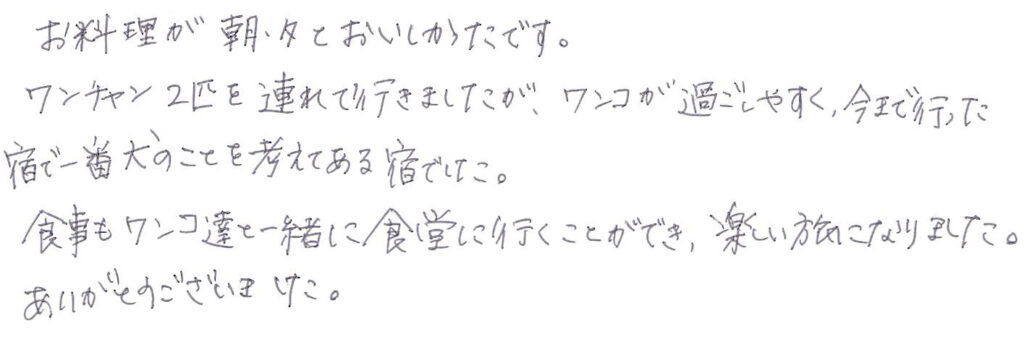 お料理が朝・夕とおいしかったです。
ワンチャン2匹を連れて行きましたが、ワンコが過ごしやすく、今まで行った
宿で一番犬のことを考えてある宿でした。
食事もワンコ達と一緒に食堂に行くことができ、楽しい旅になりました。
ありがとうございました。